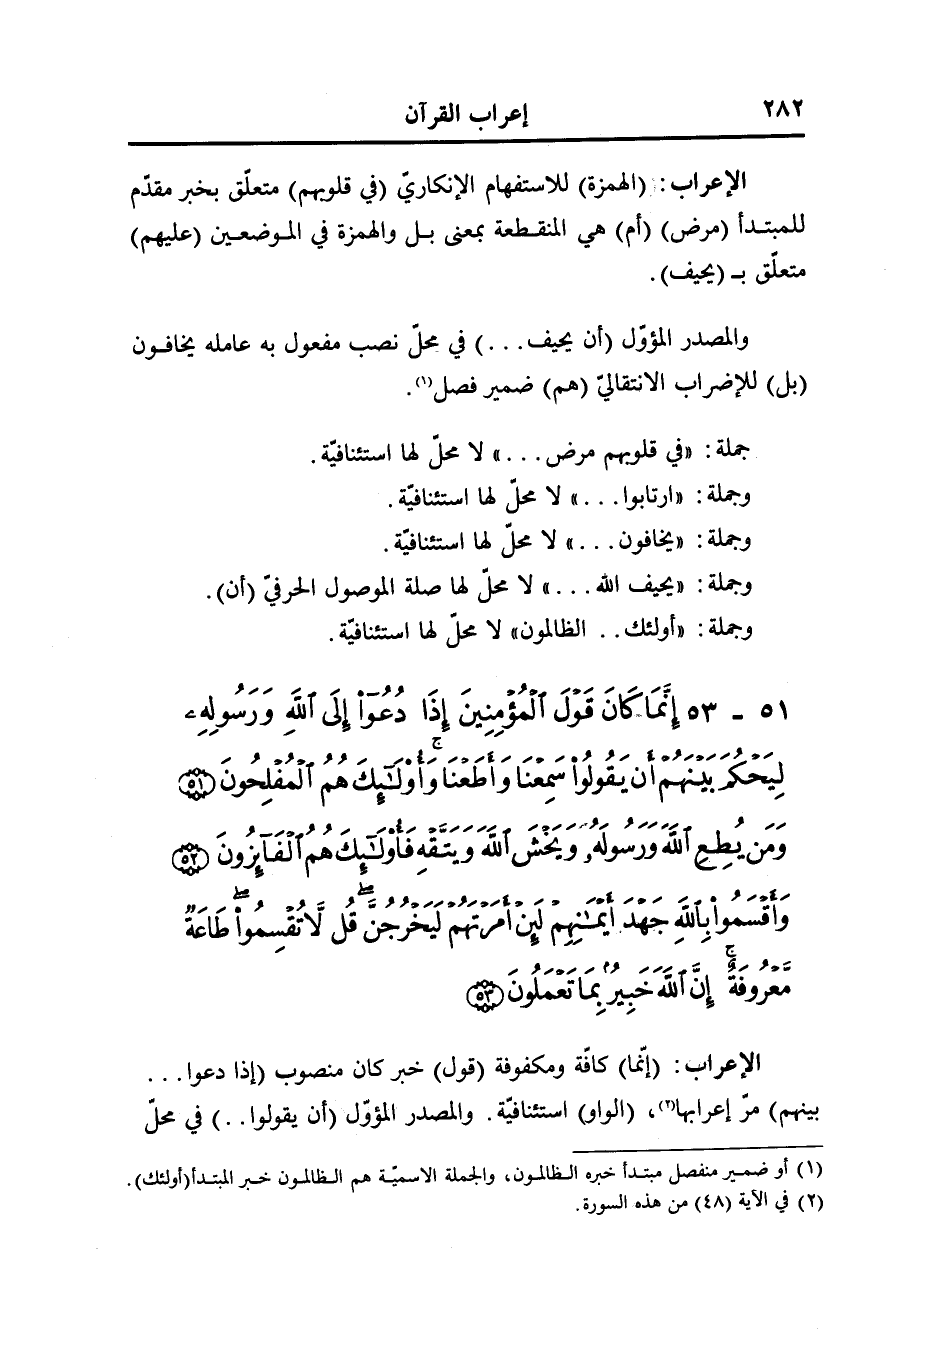 ٢٨٢
إعراب القرآن
الإعراب: (الهمزة) للاستفهام الإنكاريّ (في قلوبهم) متعلّق بخبر مقدّم
للمبتدأ (مرض) (أم) هي المنقطعة بمعنى بل والهمزة في الموضعين (عليهم)
متعلّق بـ (يحيف).
والمصدر المؤوّل (أن يحيف...) في محلّ نصب مفعول به عامله يخافون
(بل) للإضراب الانتقاليّ (هم) ضمير فصل(١).
جملة: «في قلوبهم مرض...» لا محلّ لها استئنافيّة.
وجملة: «ارتابوا...» لا محلّ لها استئنافيّة.
وجملة: «يخافون...» لا محلّ لها استئنافيّة.
وجملة: «يحيف الله...» لا محلّ لها صلة الموصول الحرفيّ (أن).
وجملة: «أولئك.. الظالمون» لا محلّ لها استئنافيّة.
٥١ - ٥٣ إِنَّمَا كَانَ قَوْلَ ٱلْمُؤْمِنِينَ إِذَا دُعُوٓا۟ إِلَى ٱللَّهِ وَرَسُولِهِۦ
لِيَحْكُمَ بَيْنَهُمْ أَن يَقُولُوا۟ سَمِعْنَا وَأَطَعْنَا ۚ وَأُو۟لَـٰٓئِكَ هُمُ ٱلْمُفْلِحُونَ ٥١
وَمَن يُطِعِ ٱللَّهَ وَرَسُولَهُۥ وَيَخْشَ ٱللَّهَ وَيَتَّقْهِ فَأُو۟لَـٰٓئِكَ هُمُ ٱلْفَآئِزُونَ ٥٢
وَأَقْسَمُوا۟ بِٱللَّهِ جَهْدَ أَيْمَـٰنِهِمْ لَئِنْ أَمَرْتَهُمْ لَيَخْرُجُنَّ ۖ قُل لَّا تُقْسِمُوا۟ ۖ طَاعَةٌ
مَّعْرُوفَةٌ ۚ إِنَّ ٱللَّهَ خَبِيرٌۢ بِمَا تَعْمَلُونَ ٥٣
الإعراب: (إنّما) كافّة ومكفوفة (قول) خبر كان منصوب (إذا دعوا...
بينهم) مرّ إعرابها(٢)، (الواو) استئنافيّة. والمصدر المؤوّل (أن يقولوا..) في محلّ
(١) أو ضمير منفصل مبتدأ خبره الظالمون، والجملة الاسميّة هم الظالمون خبر المبتدأ(أولئك).
(٢) في الآية (٤٨) من هذه السورة.